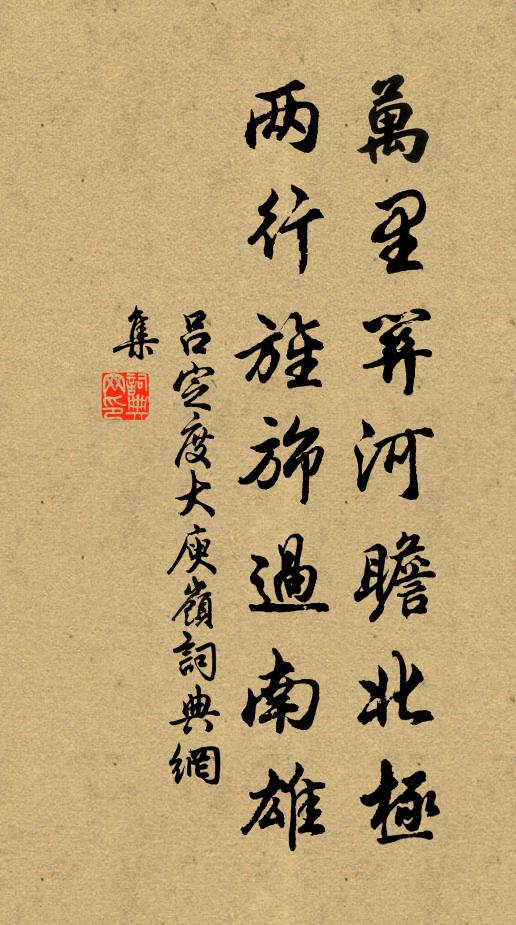 萬里關河瞻北極
两行旌旆過南雄
呂定度大庾嶺詞典網
集
詞典
网印